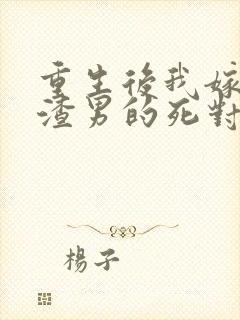 重生後我嫁
渣男的死對
楊子